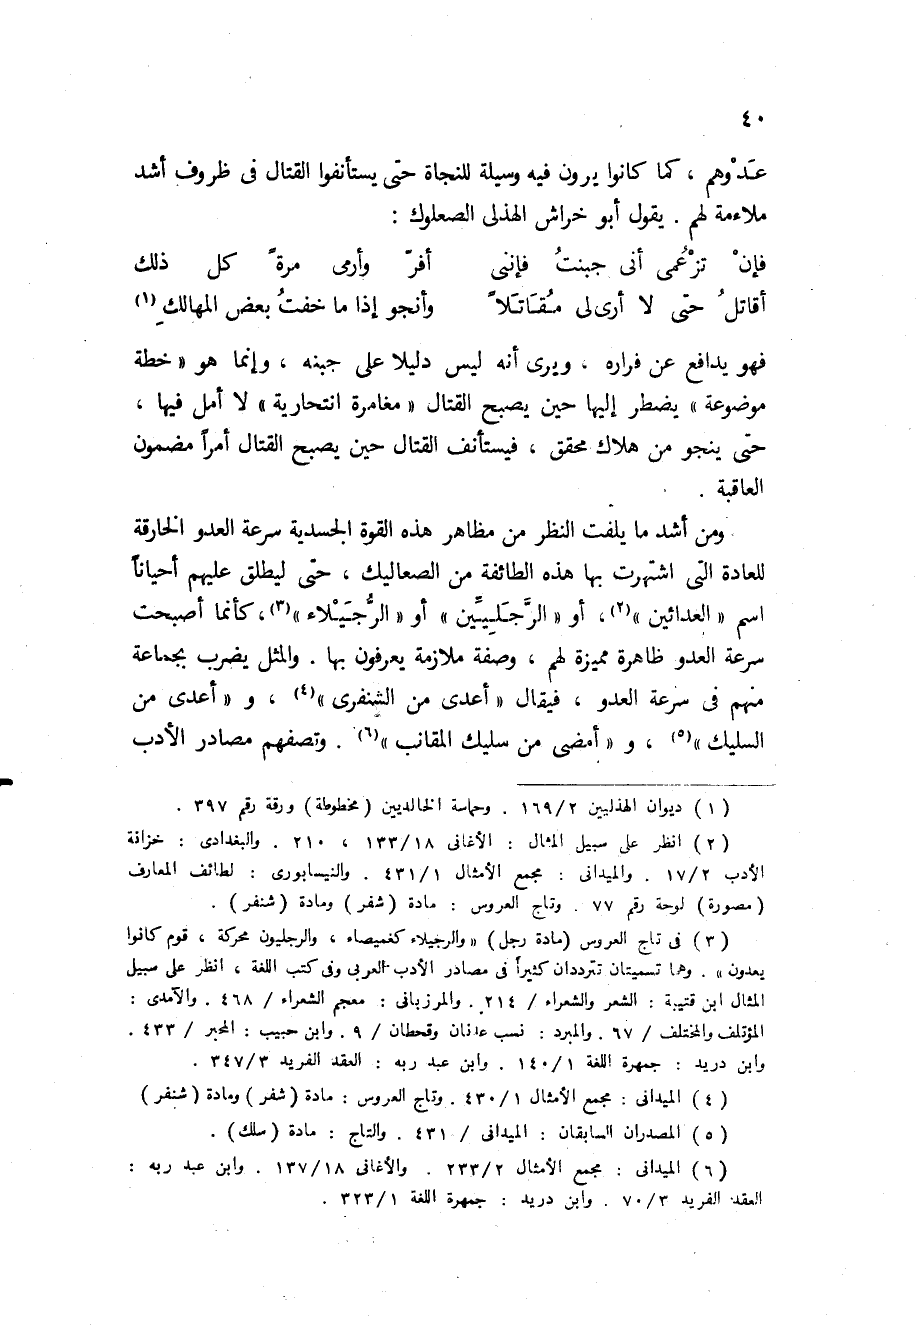 ٤٠
عَدْوهم ، كما كانوا يرون فيه وسيلة للنجاة حتى يستأنفوا القتال فى ظروف أشد
ملاءمة لهم . يقول أبو خراش الهذلى الصعلوك :
فإنْ تزْعُمى أنى جبنتُ فإننى أفرّ وأرمى مرةً كل ذلك
أقاتلُ حتى لا أرى لى مُقَاتَلاً وأنجو إذا ما خفتُ بعض المهالكِ(١)
فهو يدافع عن فراره ، ويرى أنه ليس دليلا على جبنه ، وإنما هو « خطة
موضوعة » يضطر إليها حين يصبح القتال « مغامرة انتحارية » لا أمل فيها ،
حتى ينجو من هلاك محقق ، فيستأنف القتال حين يصبح القتال أمراً مضمون
العاقبة .
ومن أشد ما يلفت النظر من مظاهر هذه القوة الجسدية سرعة العدو الخارقة
للعادة التى اشتهرت بها هذه الطائفة من الصعاليك ، حتى ليطلق عليهم أحياناً
اسم « العدائين »(٢)، أو « الرَّجَلِيِّين » أو « الرُّجَيْلاء »(٣)، كأنما أصبحت
سرعة العدو ظاهرة مميزة لهم ، وصفة ملازمة يعرفون بها . والمثل يضرب بجماعة
منهم فى سرعة العدو ، فيقال « أعدى من الشنفرى »(٤) ، و « أعدى من
السليك »(٥) ، و « أمضى من سليك المقانب »(٦) . وتصفهم مصادر الأدب
(١) ديوان الهذليين ١٦٩/٢ . وحماسة الخالديين (مخطوطة) ورقة رقم ٣٩٧ .
(٢) انظر على سبيل المثال : الأغانى ١٣٣/١٨ ، ٢١٠ . والبغدادى : خزانة
الأدب ١٧/٢ . والميدانى : مجمع الأمثال ٤٣١/١ . والنيسابورى : لطائف المعارف
(مصورة) لوحة رقم ٧٧ . وتاج العروس : مادة (شفر) ومادة (شنفر) .
(٣) فى تاج العروس (مادة رجل) « والرجيلاء كغميصاء ، والرجليون محركة ، قوم كانوا
يعدون » . وهما تسميتان تترددان كثيراً فى مصادر الأدب العربى وفى كتب اللغة ، انظر على سبيل
المثال ابن قتيبة : الشعر والشعراء / ٢١٤ . والمرزبانى : معجم الشعراء / ٤٦٨ . والآمدى :
المؤتلف والمختلف / ٦٧ . والمبرد : نسب عدنان وقحطان / ٩ . وابن حبيب : المحبر / ٤٣٣ .
وابن دريد : جمهرة اللغة ١٤٠/١ . وابن عبد ربه : العقد الفريد ٣٤٧/٣ .
(٤) الميدانى : مجمع الأمثال ٤٣٠/١ . وتاج العروس : مادة (شفر) ومادة (شنفر)
(٥) المصدران السابقان : الميدانى / ٤٣١ . والتاج : مادة (سلك) .
(٦) الميدانى : مجمع الأمثال ٢٣٣/٢ . والأغانى ١٣٧/١٨ . وابن عبد ربه :
العقد الفريد ٧٠/٣ . وابن دريد : جمهرة اللغة ٣٢٣/١ .